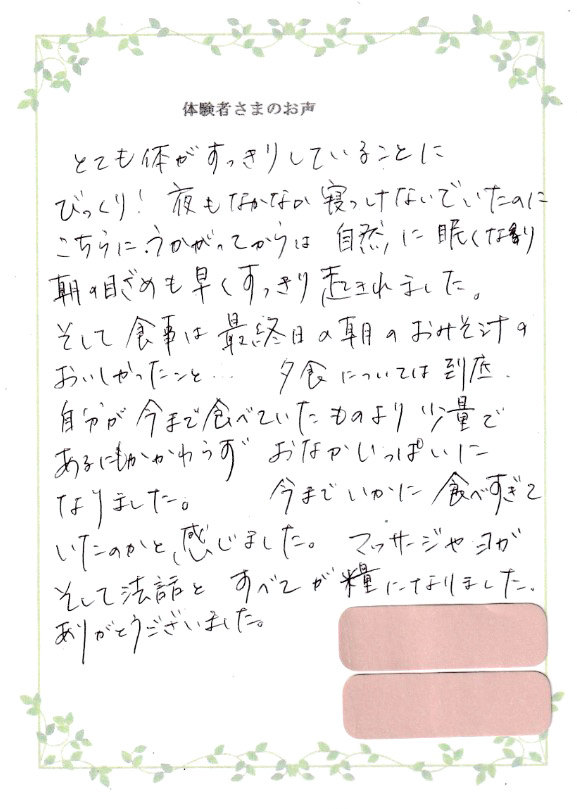 体験者さまのお声
とても体がすっきりしていることに
びっくり！夜もなかなか寝つけないでいたのに
こちらにうかがってからは自然に眠くなり
朝の目ざめも早くすっきり起きれました。
そして食事は最終日の朝のおみそ汁の
おいしかったこと… 夕食については到底、
自分が今まで食べていたものより少量で
あるにもかかわらず おなかいっぱいに
なりました。 今までいかに食べすぎて
いたのかと感じました。マッサージやヨガ
そして法話と すべてが糧になりました。
ありがとうございました。